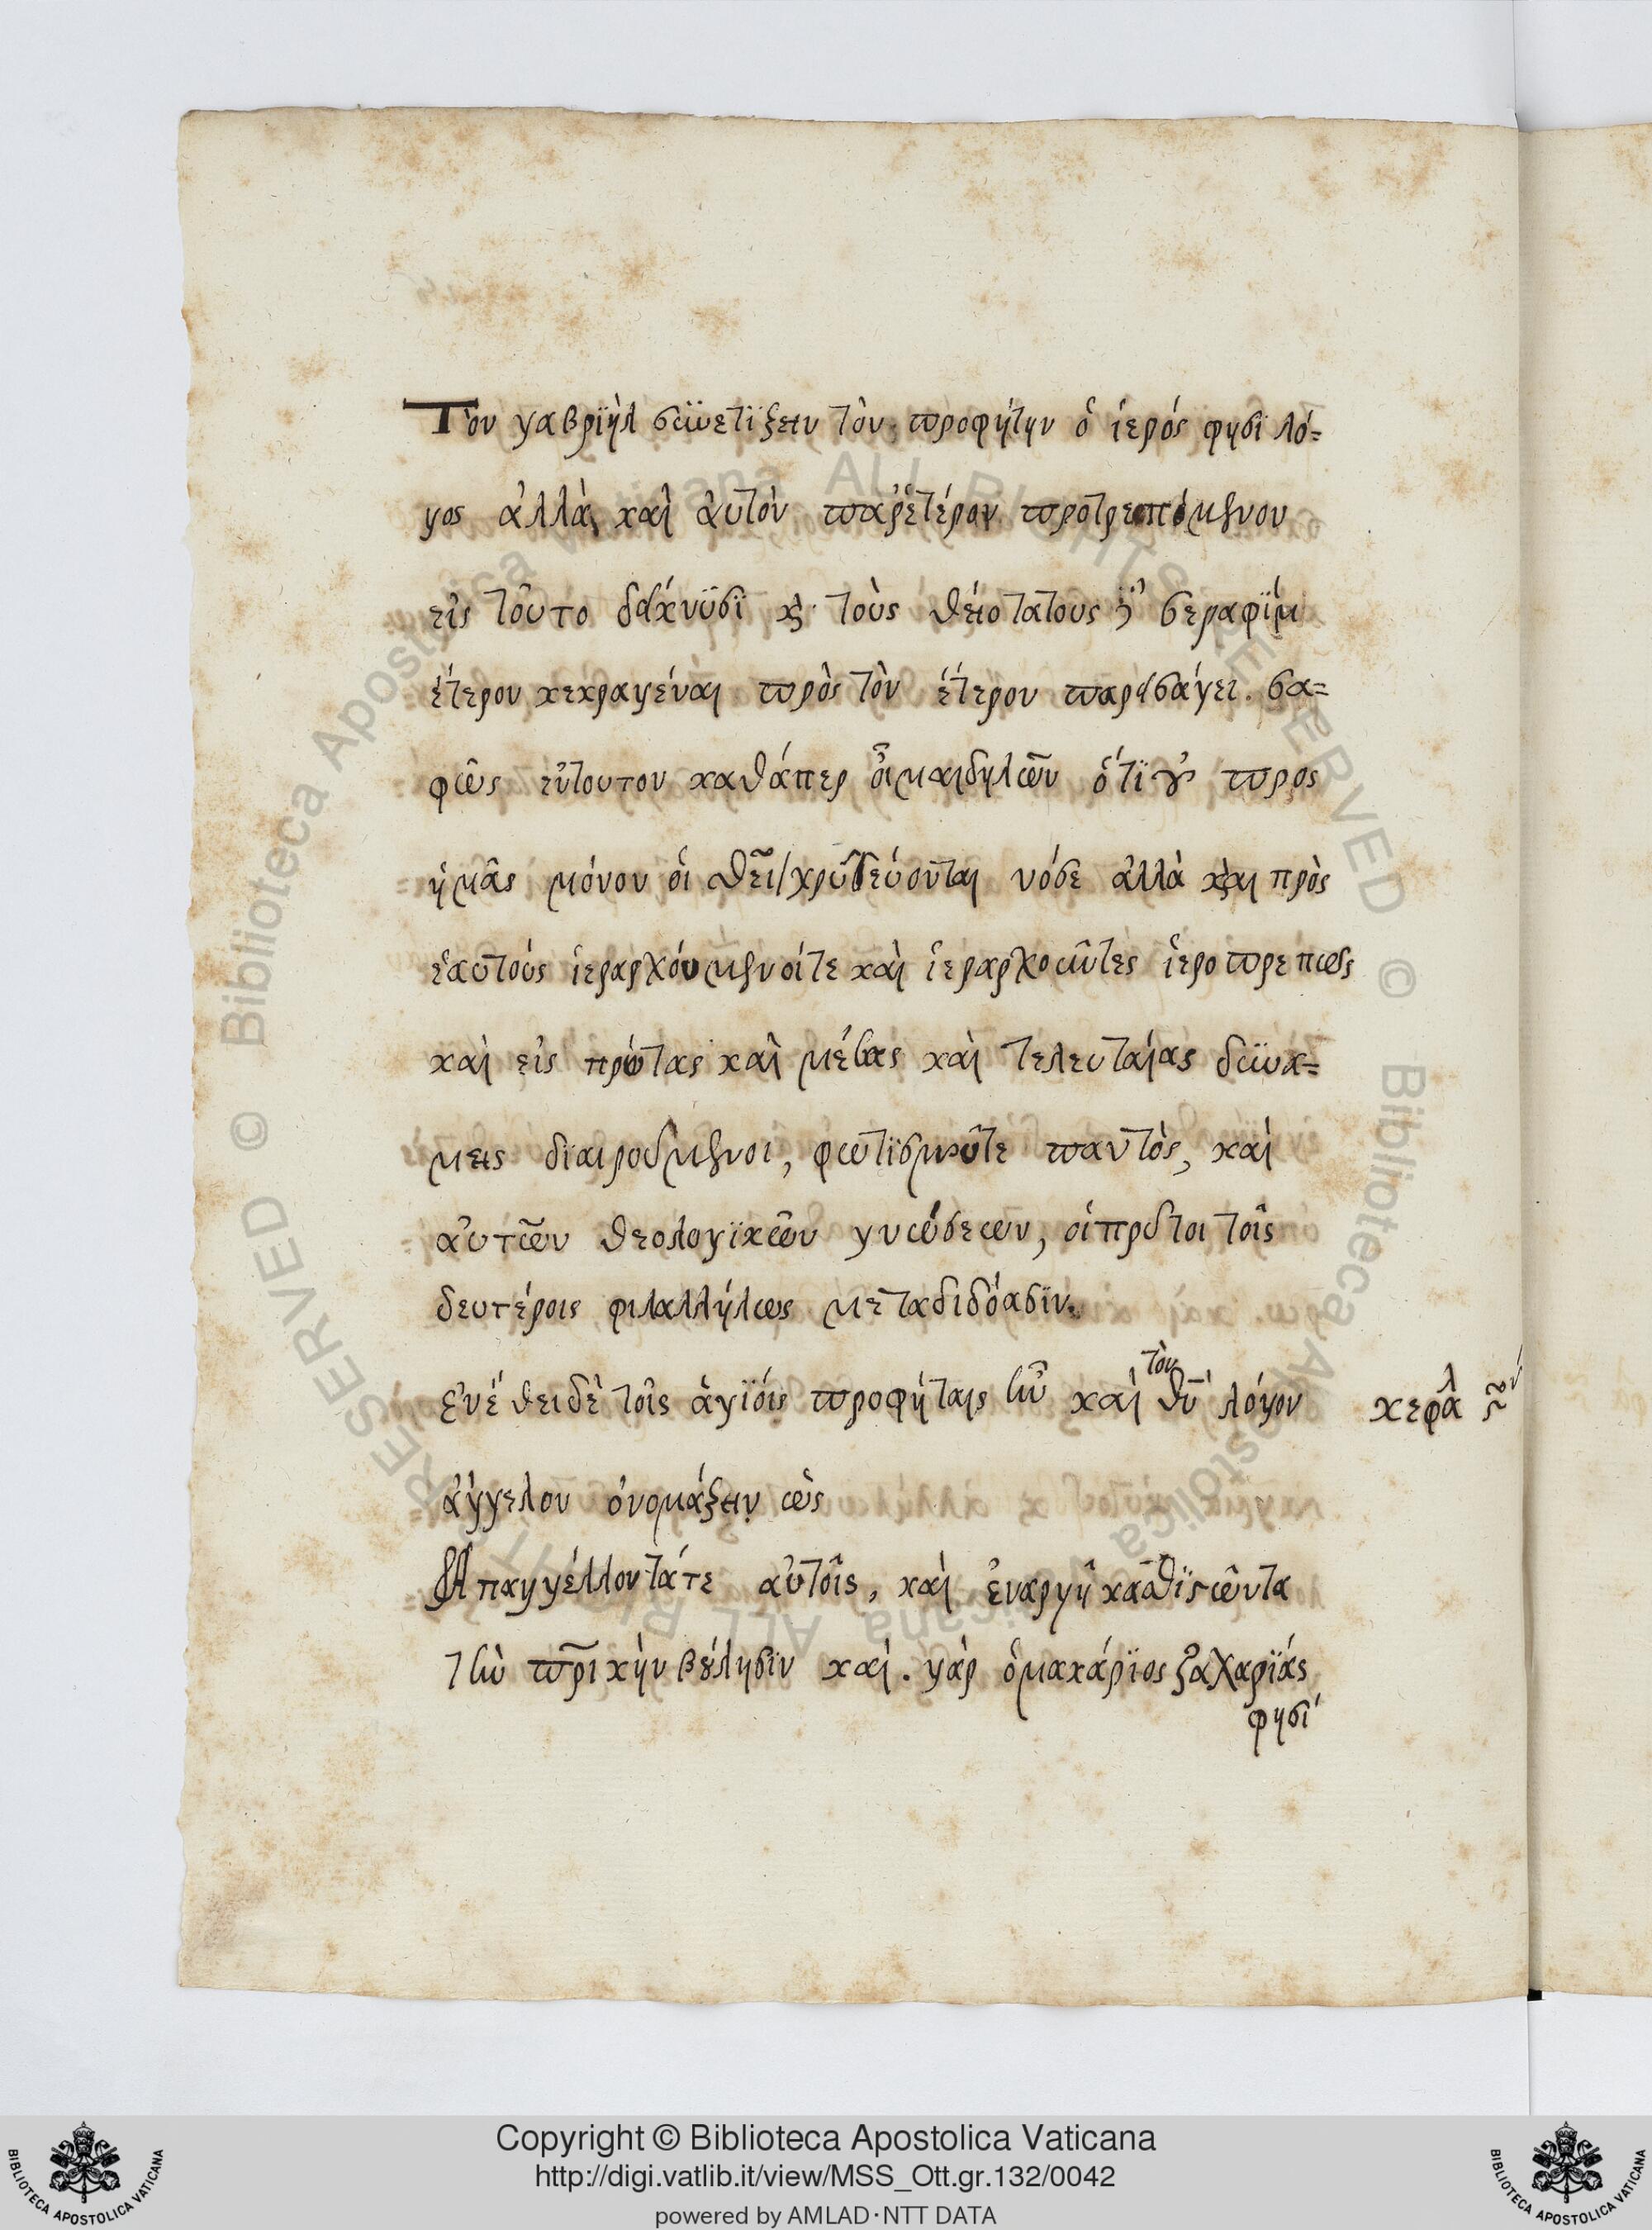 Τὸν γαβριὴλ συνετίζειν τὸν προφήτην ὁ ἱερός φησι λό=
γος ἀλλὰ καὶ ἀυτὸν παρ' ἑτέρου προτρεπόμενον
εἰς τοῦτο δείκνυσι κ τοὺς θειοτάτους σεραφὶμ
ἕτερον κεκραγέναι πρὸς τὸν ἕτερον παρεισάγει. σα=
φῶς ἐν τούτου καθάπερ οἶμαι δηλῶν ὅτι οὐ προς
ἡμᾶς μόνον οἱ θεῖοι χρυ δεύονται νόες ἀλλὰ και πρὸς
ἑαυτούς ἱεραρχόυμενοίτε καὶ ἱεραρχοῦντες ἱεροπρεπως
καὶ εἰς πρώτας καὶ μέσας καὶ τελευταίας δυνα=
μεις διαιρούμενοι, φωτισμοῦτε παντὸς, καὶ
αὐτῶν θεολογικῶν γνώσεων, οἱ πρῶτοι τοῖς
δευτέροις φιλαλλήλως μεταδιδόασιν.
ξυνέθει δὲ τοῖς ἁγίοις προφήταις ἦν καὶ τὸν θῦ λόγον
κεφα λ
ἄγγελον ὀνομάζειν ὡς
Ἀπαγγέλλοντάτε αὐτοῖς, καὶ ἐναργῆ καθιστῶντα
τὴν πρικὴν βούλησιν καὶ. γὰρ ὁ μακάριος ζαχαρίας
φησί
Copyright © Biblioteca Apostolica Vaticana
http://digi.vatlib.it/view/MSS_Ott.gr.132/0042
powered by AMLAD·NTT DATA
BIBLIOTECA APOSTOLICA VATICANA
BIBLIOTECA APOSTOLICA VATICANA